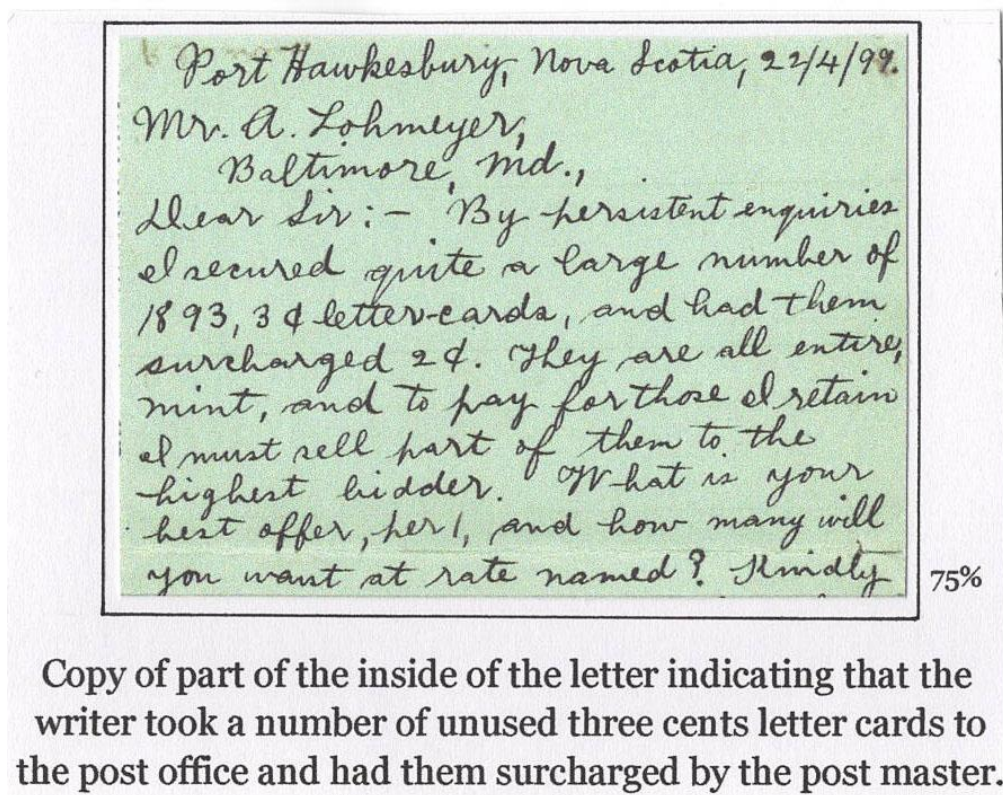 Port Hawkesbury, Nova Scotia, 22/4/99.
Mr. A. Lohmeyer,
Baltimore, Md.,
Dear Sir:- By persistent enquiries
I secured quite a large number of
1893, 3¢ letter-cards, and had them
surcharged 2¢. They are all entire,
mint, and to pay for those I retain
I must sell part of them to the
highest bidder. What is your
best offer, per 1, and how many will
you want at rate named? Kindly
75%
Copy of part of the inside of the letter indicating that the
writer took a number of unused three cents letter cards to
the post office and had them surcharged by the post master.